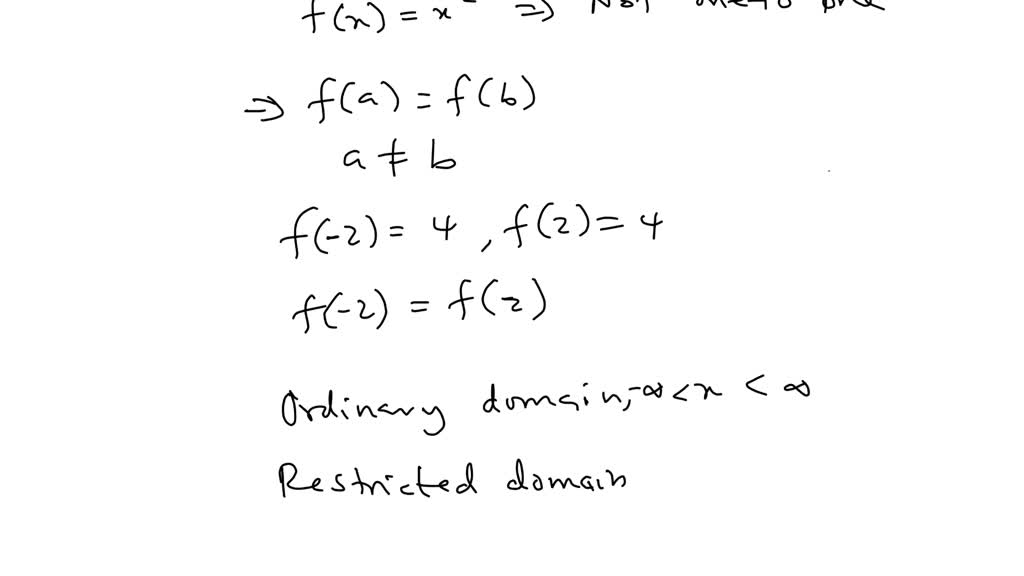 f(x) = x² ⇒ Not one-to one
⇒ f(a) = f(b)
a ≠ b
f(-2) = 4 , f(2) = 4
f(-2) = f(2)
Ordinary domain, -∞ < x < ∞
Restricted domain